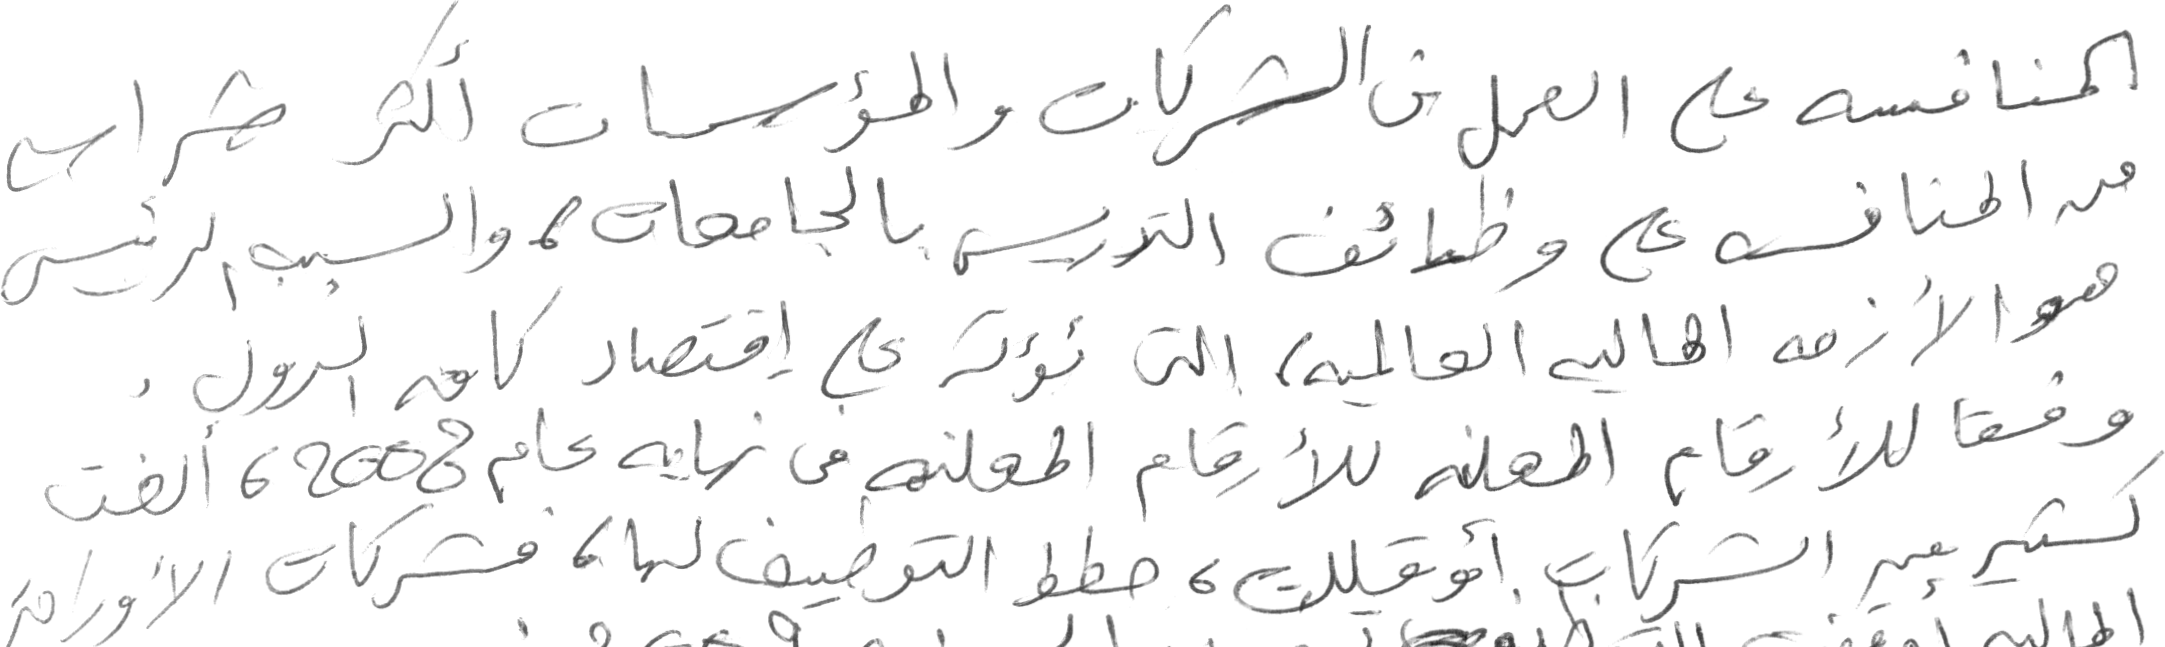 المنافسه على العمل فى الشركات والمؤسسات أكثر ضراسه
من المنافسه على وظائف التدريس بالجامعات، والسبب الرئيسى
هو الأزمه الماليه العالميه، التى تؤثر على إقتصاد كافه الدول.
وفقا للأرقام المعلنه للأرقام المعلنه فى نهايه عام 2008، ألغت
كثير من الشركات أو قللت، خطط التوظيف لها، فشركات الأوراق
الماليه أوقفت 2009